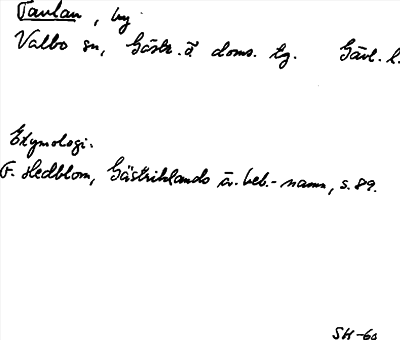 Tavlan, by
Valbo sn, Gästr. ö doms. tg. Gävl. l.
Etymologi.
F. Hedblom, Gästriklands ä. beb.-namn, s. 89.
SH-60